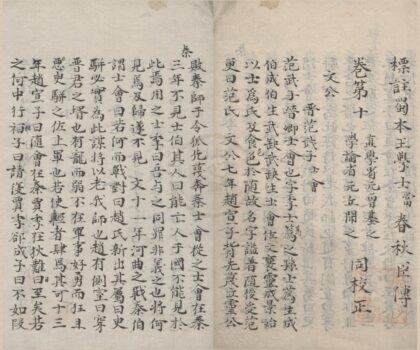 標註蜀本王學士當春秋臣傳
卷第十
直學省元曾基之
學諭省元虞開之
同校正
文公
晉范武子士會
范武子晉卿士會也字季士蒍之孫士蒍生成
伯成伯生武獻武缺生士會佐文襄靈成景始
以士為氏及食邑於隨故名字謚者隨後受范
更曰范氏 文公七年趙宣子背先蔑立靈公
敗秦師于令狐先蔑奔秦士會從之士會在秦
三年不見士伯其人曰能亡人于國不能見於
此焉用之士季曰吾與之同罪非義之也將何
見焉及歸遂不見 文十二年河曲之戰秦伯
謂士會曰若何而戰對曰趙氏新出其屬曰臾
駢必實為此謀將以老我師也趙有側室曰穿
晉君之壻也有寵而弱不在軍事好勇而狂且
惡臾駢之佐上軍也若使輕者肆焉其可十三
年趙宣子曰隨會在秦賈季在狄難日至矣若
之何中行桓子曰請復賈季郤成子曰不如隨
秦